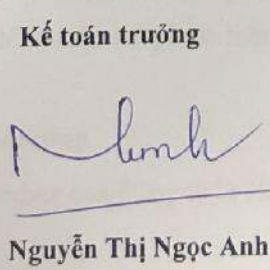 Kế toán trưởng
Nguyễn Thị Ngọc Anh